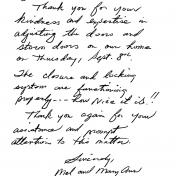 Thank you for your
kindness and expertise in
adjusting the doors and
storm doors on our home
on Thursday, Sept. 8th.
The closure and locking
system are functioning
properly -- how nice it is!!
Thank you again for your
assistance and prompt
attention to this matter.
Sincerely,
Mel and Mary Ann